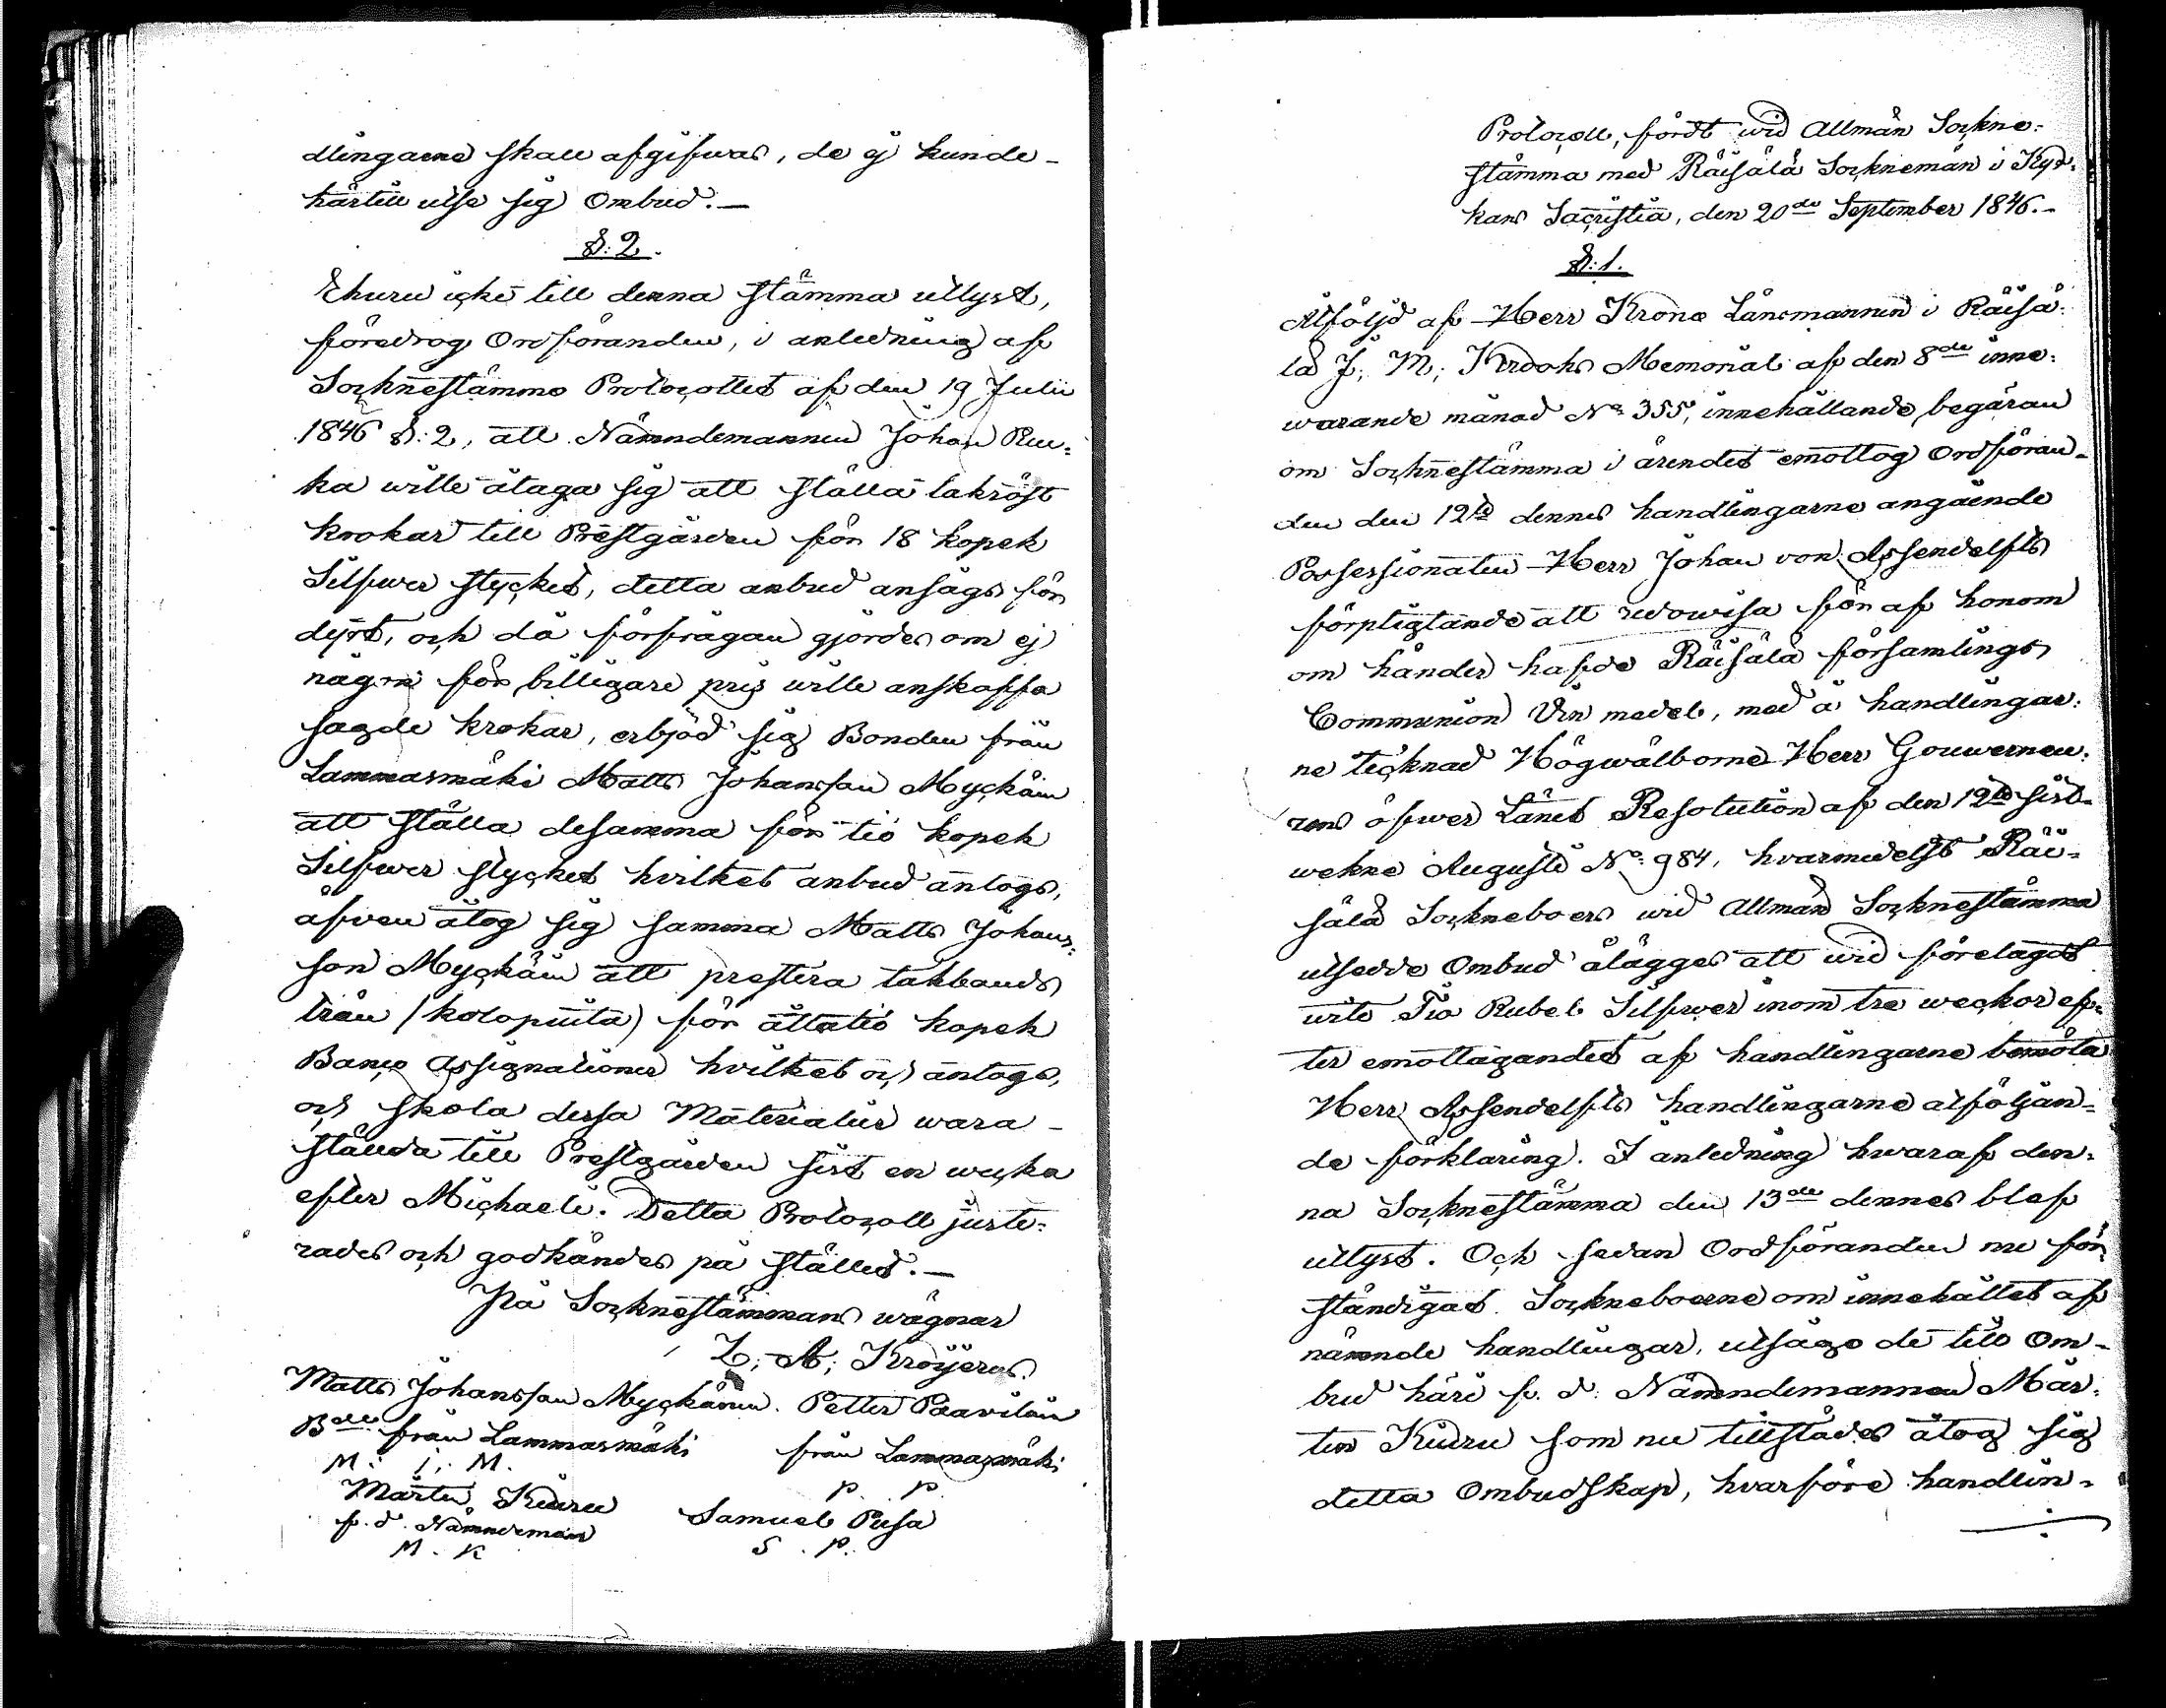 dlingarne skall afgifwas, de ej kunde
härtill utse sig Ombud.—
§: 2.
Ehuru icke till denna stämma utlyst,
föredrog Ordföranden, i anledning af
Socknestämmo Protocollet af den 19 Julii
1846 §: 2, att Nämndemannen Johan Ruu=
ka wille åtaga sig att ställa takröst
krokar till Prestgården för 18 kopek
Silfwer stycket, detta anbud ansågs för
dyrt, och då förfrågan gjordes om ej
någon för billigare pris wille anskaffa
sagde krokar, erbjöd sig Bonden från
Lammasmäki Matts Johansson Myckäin
att ställa desamma för tio kopek
Silfwer stycket hvilket anbud antogs,
äfven åtog sig samma Matts Johans=
son Myckäin att prestera takbands
trän (kolopuita) för åttatio kopek
Banco Assignationer hvilket och antogs,
och skola dessa Materialier wara
ställda till Prestgården sist en wecka
efter Michaeli. Detta Protocoll juste=
rades och godkändes på stället.—
På Sockneståmmans wägnar
Z; A; Kröijerus.
Matts Johansson Myckäinen. Petter Paavilain
B från Lammasmäki från Lammasmäki
M: j: M. P. P.
Mårten Kiuru Samuel Pusa
f. d. Nämndeman S. P.
M. K
Protocoll, fördt wid Allmän Sockne=
stämma med Räisälä Socknemän i Kyr=
kans Sacristia, den 20de September 1846.-
§: 1.
Åtföljd af Herr Krono Länsmannen i Räisä=
lä J; M; Krooks Memorial af den 8de inne=
warande månad No 355, innehållande begäran
om Sockneståmma i ärendet emottog Ordföran=
den den 12te dennes handlingarne angående
Possessionaten Herr Johan von Assendelfts
förpligtande att redowisa för af honom
om händer hafde Räisälä församlings
Communion Vin medel, med å handlingar=
ne tecknad Högwälborne Herr Gouverneu=
rens öfwer Länet Resolution af den 12te sist=
wekne Augusti No: 984, hvarmedelst Räi=
sälä Sockneboers wid Allmän Sockneståmma
utsedde Ombud ålägges att wid förelagdt
wite Tio Rubel Silfwer inom tre weckor ef=
ter emottagandet af handlingarne bemöta
Herr Assendelfts handlingarne åtföljan=
de förklaring. I anledning hwaraf den=
na Sockneståmma den 13de dennes blef
utlyst. Och sedan Ordföranden nu för=
ståndigat Sockneboerne om innehållet af
nämnde handlingar, utsågo de till Om=
bud häri f. d. Nämndemannen Mår=
ten Kiuru som nu tillstädes åtog sig
detta Ombudskap, hvarföre handlin=